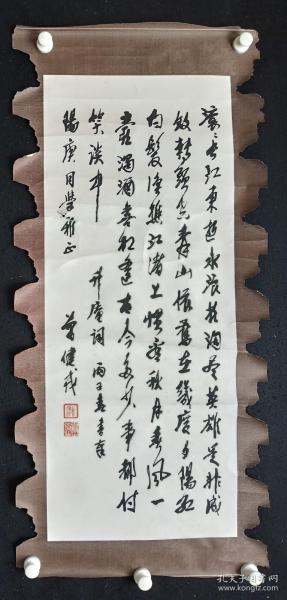 滚滚长江东逝水浪花淘尽英雄是非成
败转头空青山依旧在几度夕阳红
白发渔樵江渚上惯看秋月春风一
壶浊酒喜相逢古今多少事都付
笑谈中 升庵词 丙子春
阳庚同学雅正
曾健戎
孔夫子旧书网